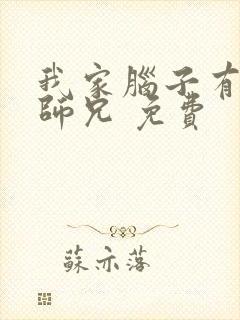 我家腦子有
師兄 免費
蘇亦落